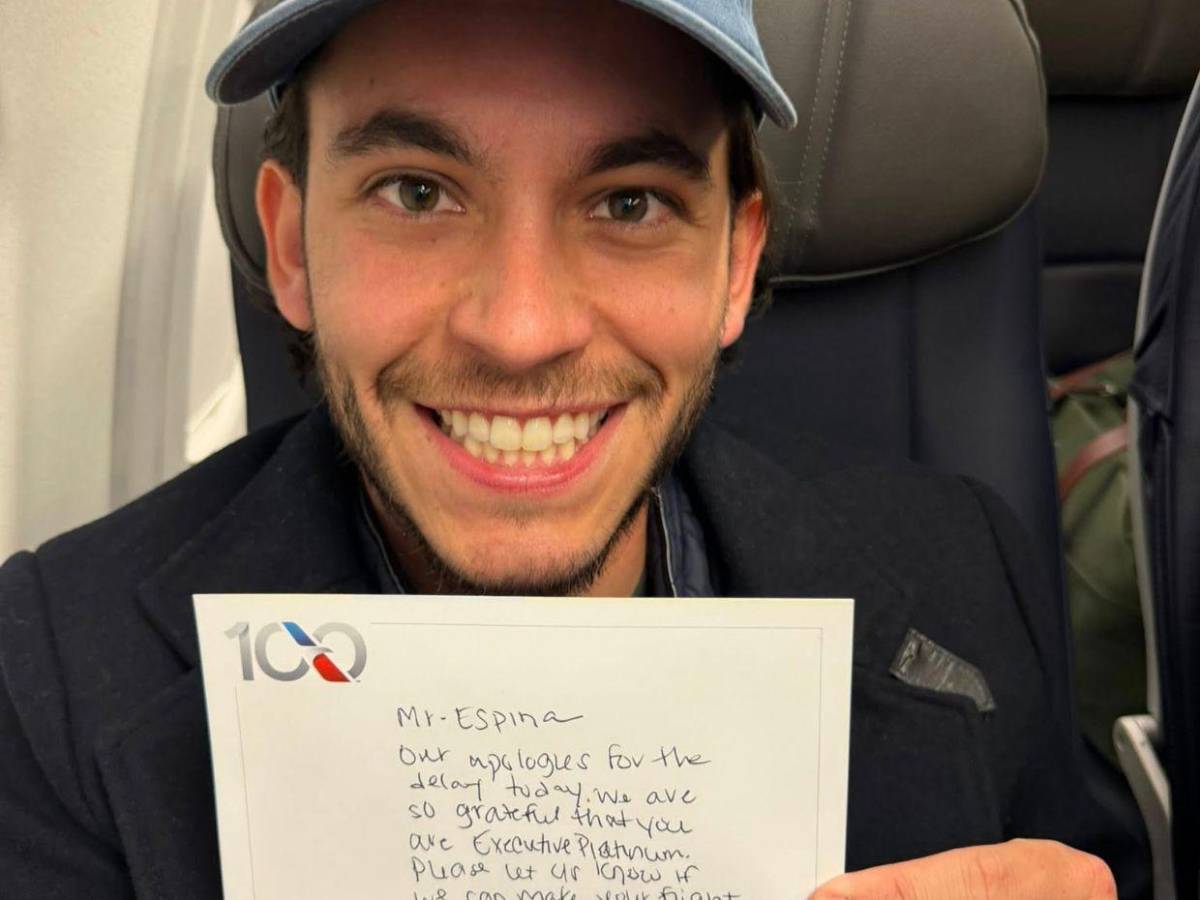 100
Mr. Espina
Our apologies for the
delay today. We are
so grateful that you
are Executive Platinum.
Please let us know if
we can make your flight